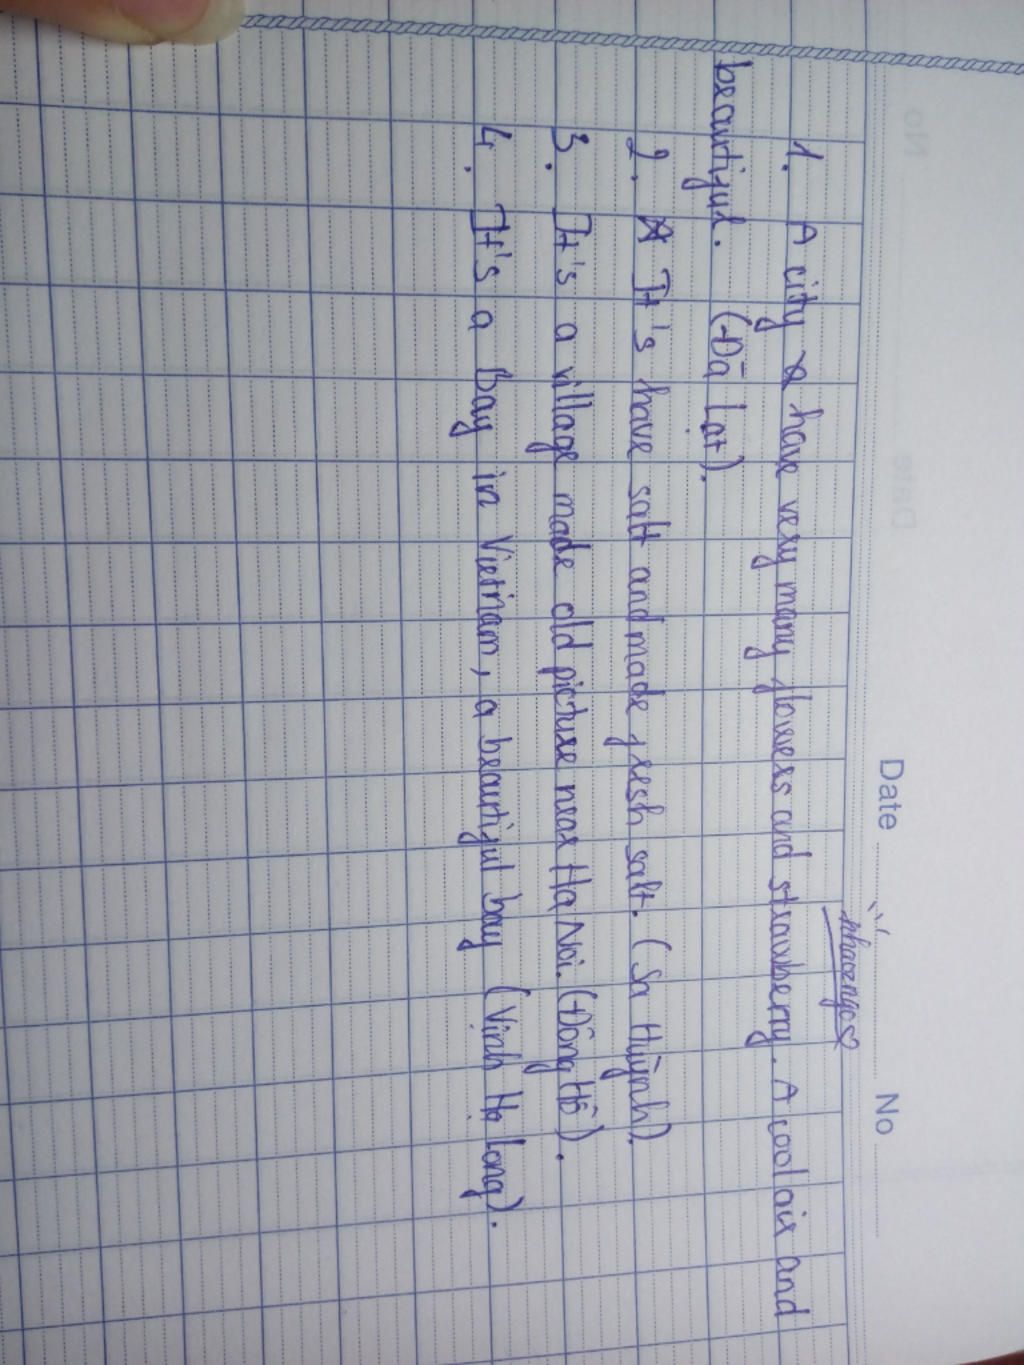 Date No
phaengc♡
1. A city have very many flowers and strawberry. A cool air and
beautiful. (Đà Lạt).
2. It's have salt and made fresh salt. (Sa Huỳnh).
3. It's a village made old picture near Hạ Nôi. (Đông Hồ).
4. It's a Bay in Vietnam, a beautiful bay (Vịnh Hạ Long).